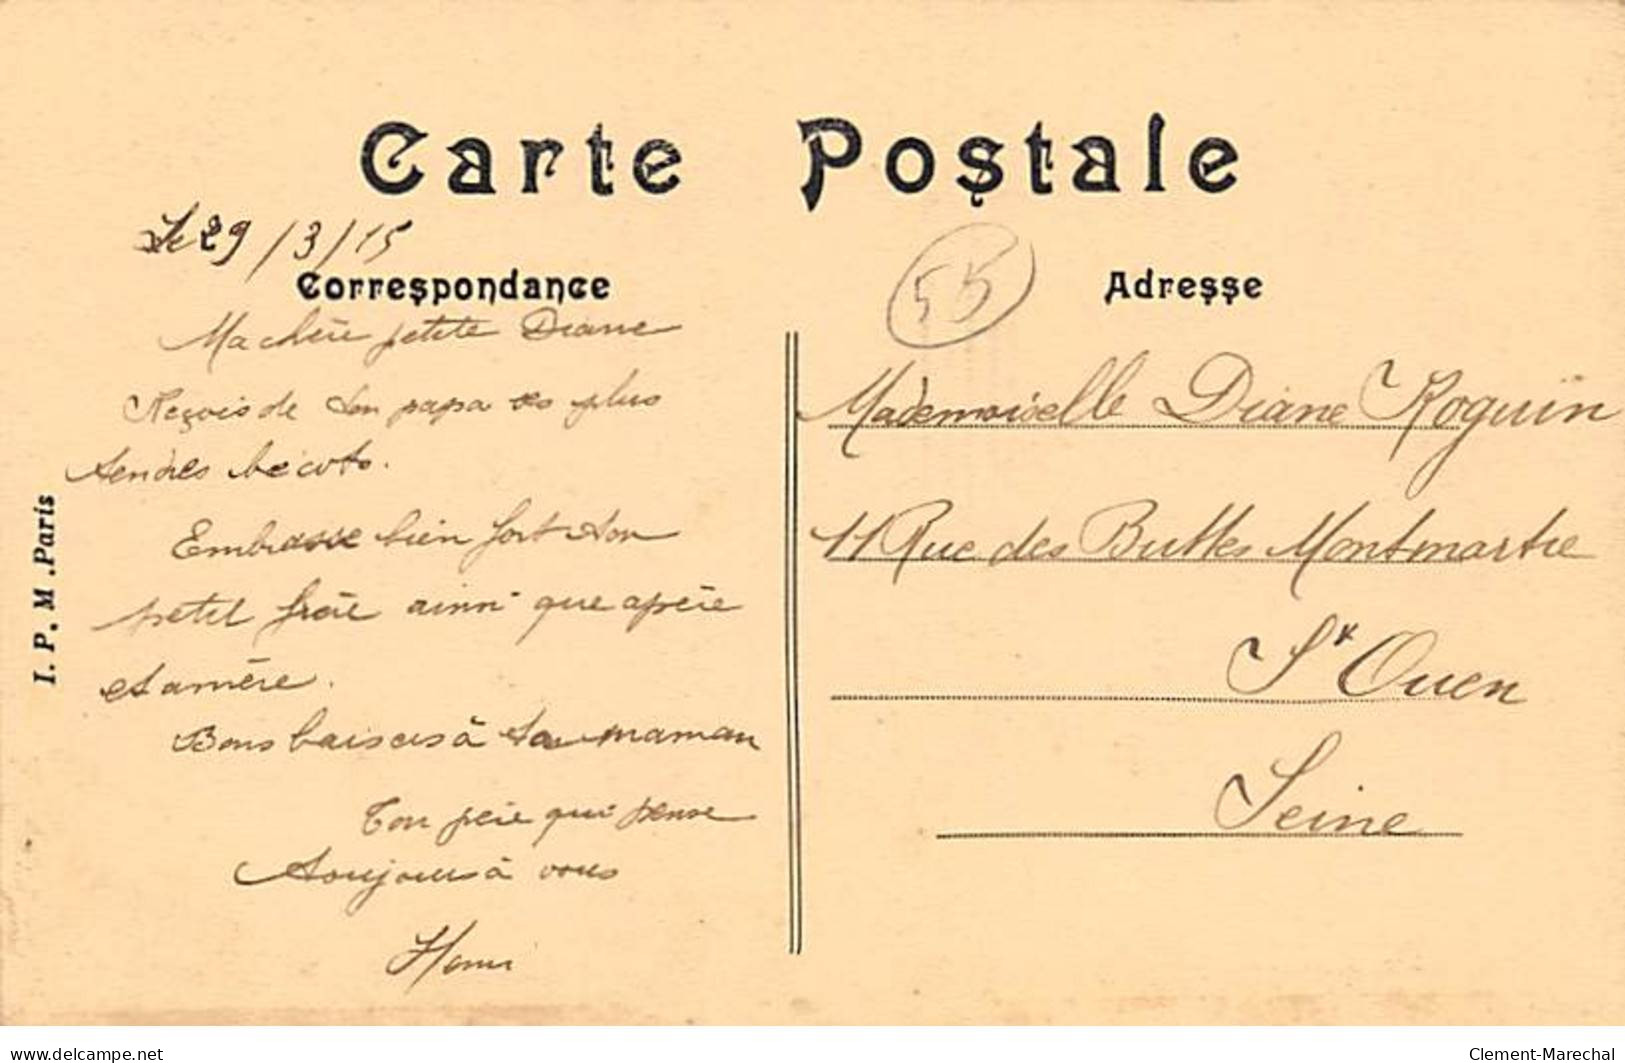 Carte Postale
Le 29/3/15
Correspondance
Ma chère petite Diane
Reçois de ton papa ses plus
tendres bécots.
Embrasse bien fort ton
petit frère ainsi que apère
et amère.
Bons baisers à ta maman
Ton père qui pense
toujours à vous
Henri
I. P. M. Paris
55
Adresse
Mademoiselle Diane Roguin
11 Rue des Buttes Montmartre
St Ouen
Seine
delcampe.net
Clement-Marechal